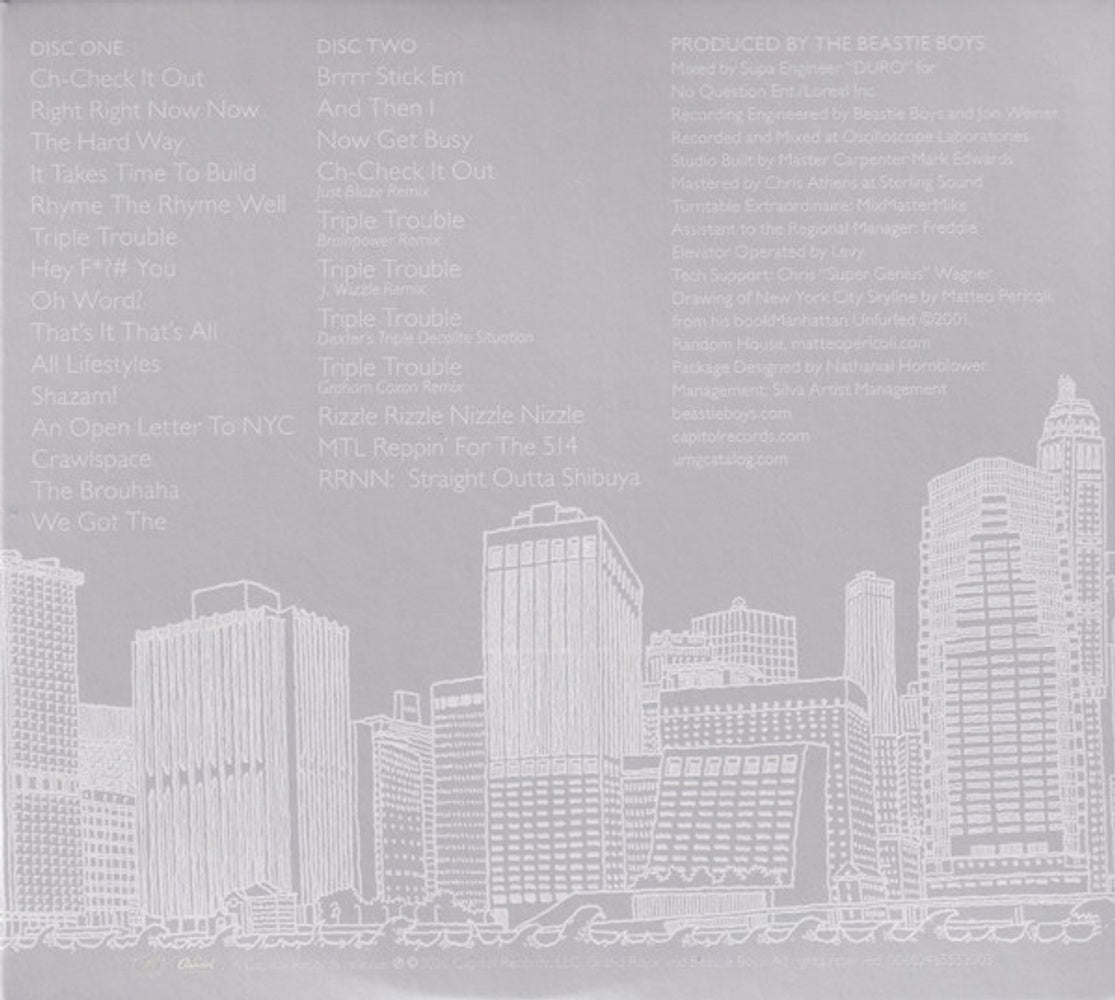 DISC ONE
Ch-Check It Out
Right Right Now Now
The Hard Way
It Takes Time To Build
Rhyme The Rhyme Well
Triple Trouble
Hey F*?# You
Oh Word?
That's It That's All
All Lifestyles
Shazam!
An Open Letter To NYC
Crawlspace
The Brouhaha
We Got The
DISC TWO
Brrrr Stick Em
And Then I
Now Get Busy
Ch-Check It Out
Just Blaze Remix
Triple Trouble
Brainpower Remix
Triple Trouble
J. Wizzle Remix
Triple Trouble
Dexter's Triple Decalite Situation
Triple Trouble
Graham Coxon Remix
Rizzle Rizzle Nizzle Nizzle
MTL Reppin' For The 514
RRNN: Straight Outta Shibuya
PRODUCED BY THE BEASTIE BOYS
Mixed by Supa Engineer "DURO" for
No Question Ent./Loreal Inc.
Recording Engineered by Beastie Boys and Jon Weiner
Recorded and Mixed at Oscilloscope Laboratories
Studio Built by Master Carpenter Mark Edwards
Mastered by Chris Athens at Sterling Sound
Turntable Extraordinaire: MixMasterMike
Assistant to the Regional Manager: Freddie
Elevator Operated by Levy
Tech Support: Chris "Super Genius" Wagner
Drawing of New York City Skyline by Matteo Pericoli,
from his book Manhattan Unfurled ©2001,
Random House, matteopericoli.com
Package Designed by Nathanial Hornblower
Management: Silva Artist Management
beastieboys.com
capitolrecords.com
umgcatalog.com
Capitol Records ℗ © Capitol Records, LLC, Grand Royal and Beastie Boys. All rights reserved.